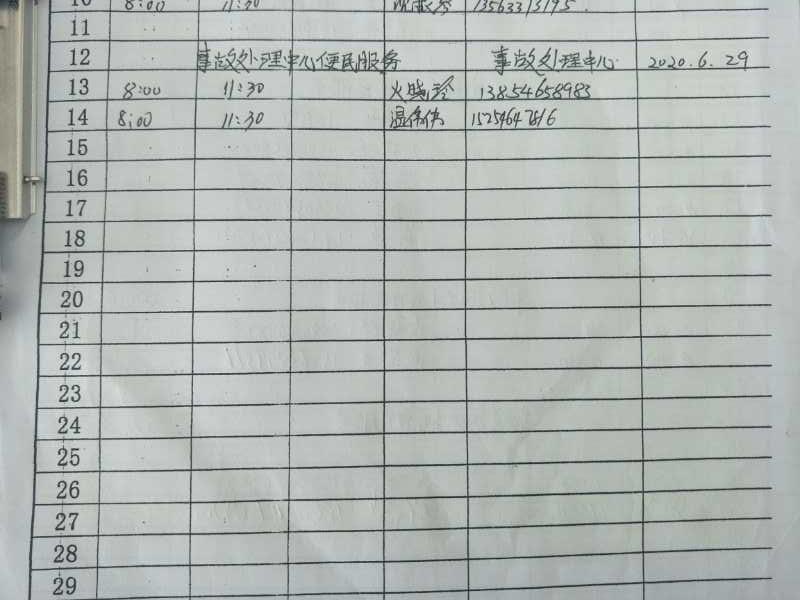 10 8:00 11:30
11
12 事故处理中心便民服务 事故处理中心 2020.6.29
13 8:00 11:30 13854658983
14 8:00 11:30 温伟伟 15254647816
15
16
17
18
19
20
21
22
23
24
25
26
27
28
29